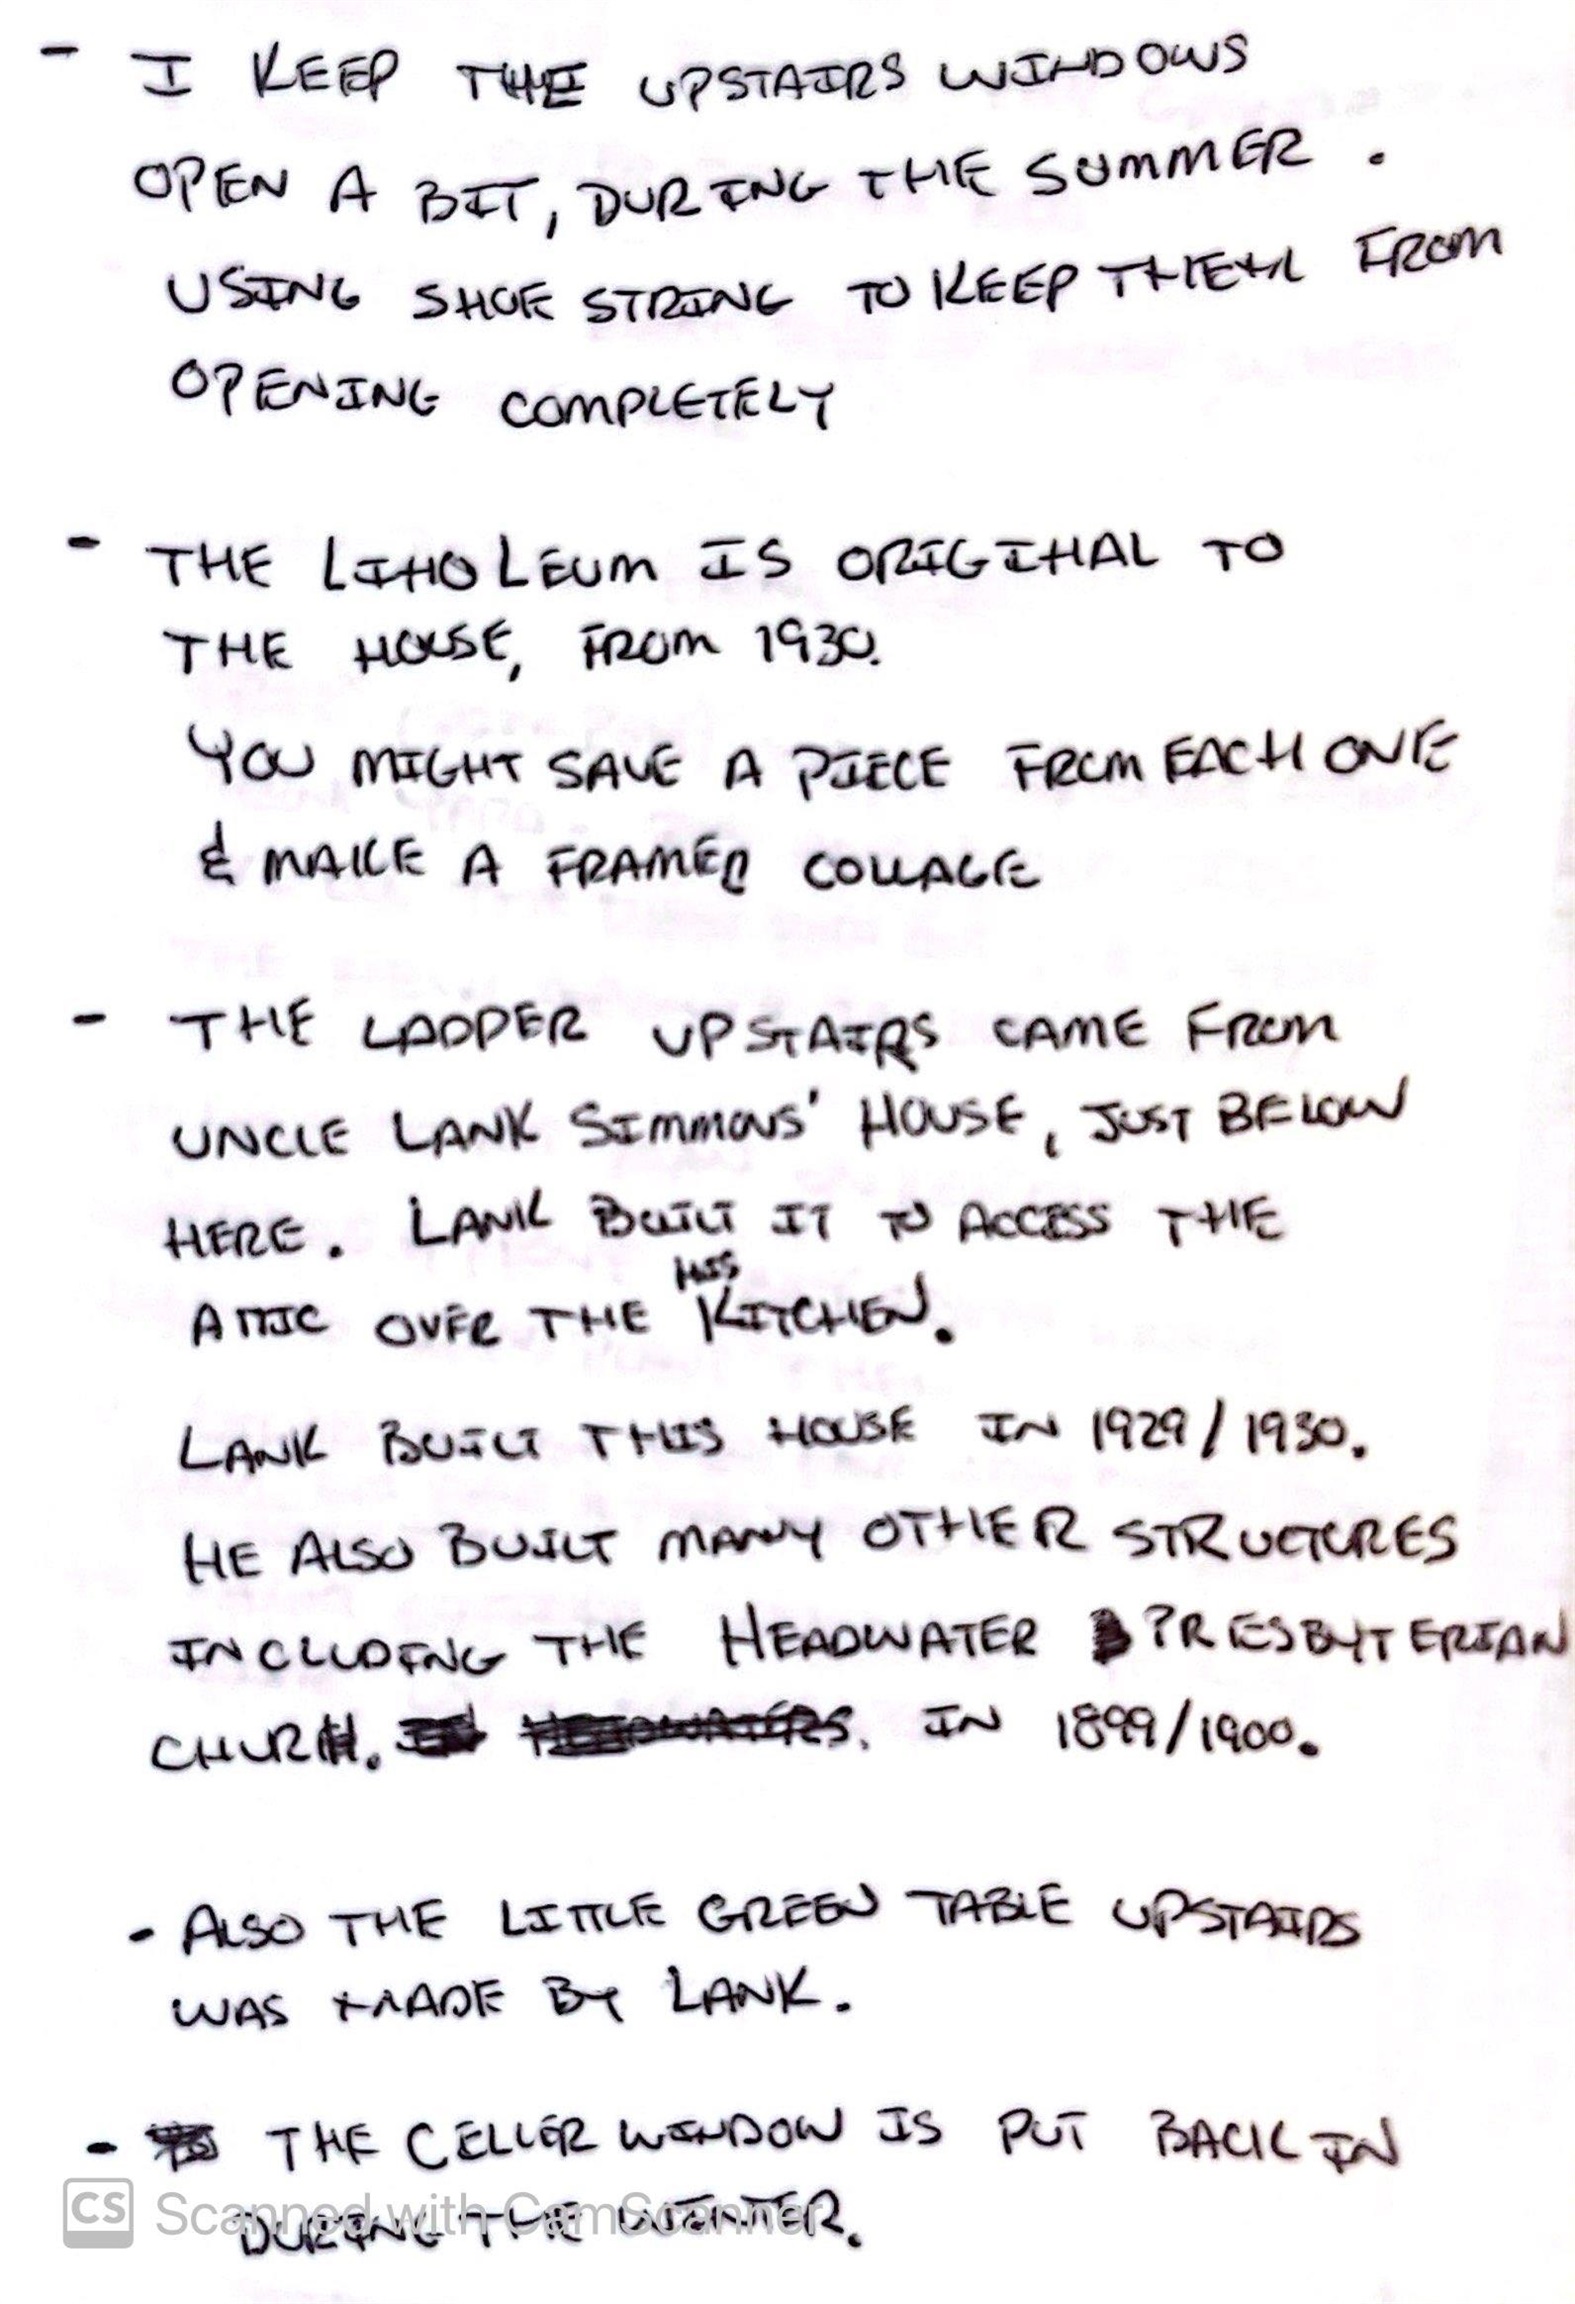 - I KEEP THE UPSTAIRS WINDOWS
OPEN A BIT, DURING THE SUMMER.
USING SHOE STRING TO KEEP THEM FROM
OPENING COMPLETELY
- THE LINOLEUM IS ORIGINAL TO
THE HOUSE, FROM 1930.
YOU MIGHT SAVE A PIECE FROM EACH ONE
& MAKE A FRAMED COLLAGE
- THE LADDER UPSTAIRS CAME FROM
UNCLE LANK SIMMONS' HOUSE, JUST BELOW
HERE. LANK BUILT IT TO ACCESS THE
HIS
ATTIC OVER THE KITCHEN.
LANK BUILT THIS HOUSE IN 1929/1930.
HE ALSO BUILT MANY OTHER STRUCTURES
INCLUDING THE HEADWATER PRESBYTERIAN
CHURH. HEADWATERS. IN 1899/1900.
- ALSO THE LITTLE GREEN TABLE UPSTAIRS
WAS MADE BY LANK.
- THE CELLER WINDOW IS PUT BACK IN
DURING THE WINTER.
CS Scanned with CamScanner